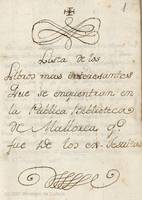 1
Lista de los
Libros mas interesantes
Que se enquentran en
la Publica Biblioteca
de Mallorca q.e
fue de los ex-Jesuitas